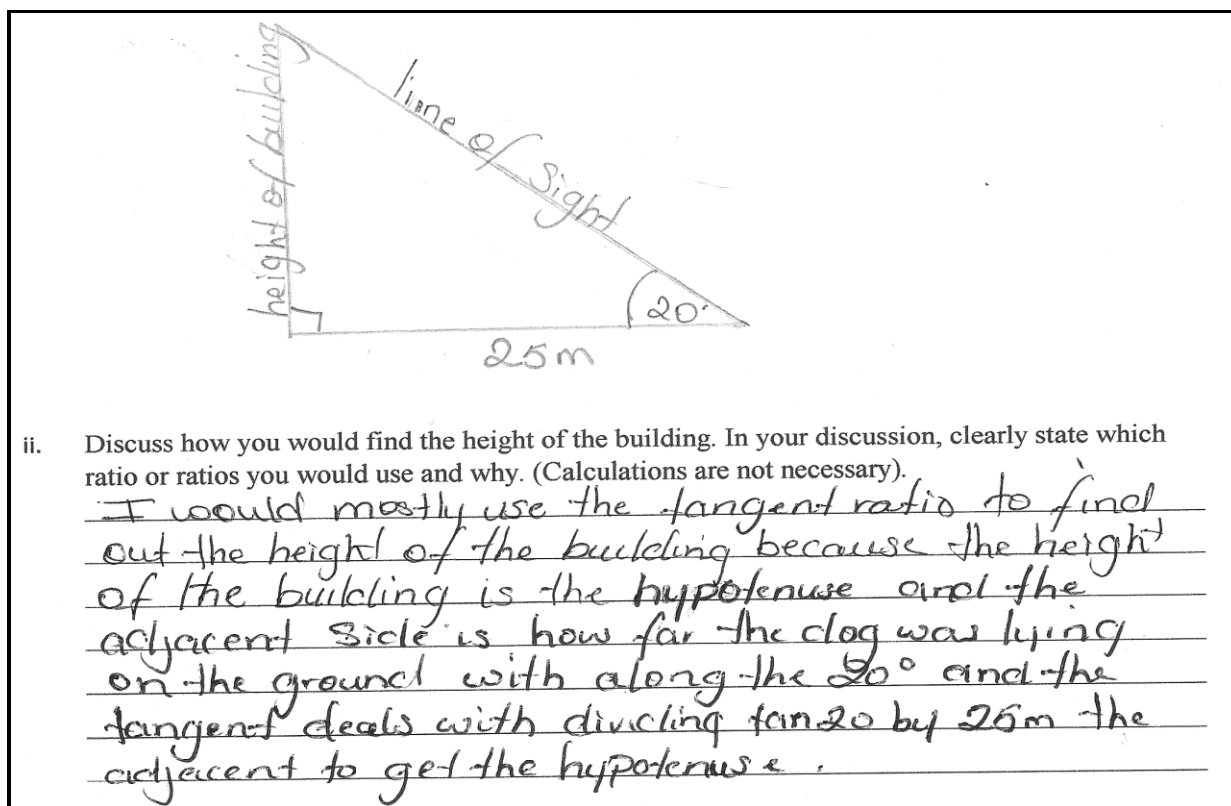 height of building
line of Sight
20°
25m
ii. Discuss how you would find the height of the building. In your discussion, clearly state which
ratio or ratios you would use and why. (Calculations are not necessary).
I would mostly use the tangent ratio to find
out the height of the building because the height
of the building is the hypotenuse and the
adjacent side is how far the dog was lying
on the ground with along the 20° and the
tangent deals with dividing tan 20 by 25m the
adjacent to get the hypotenuse.